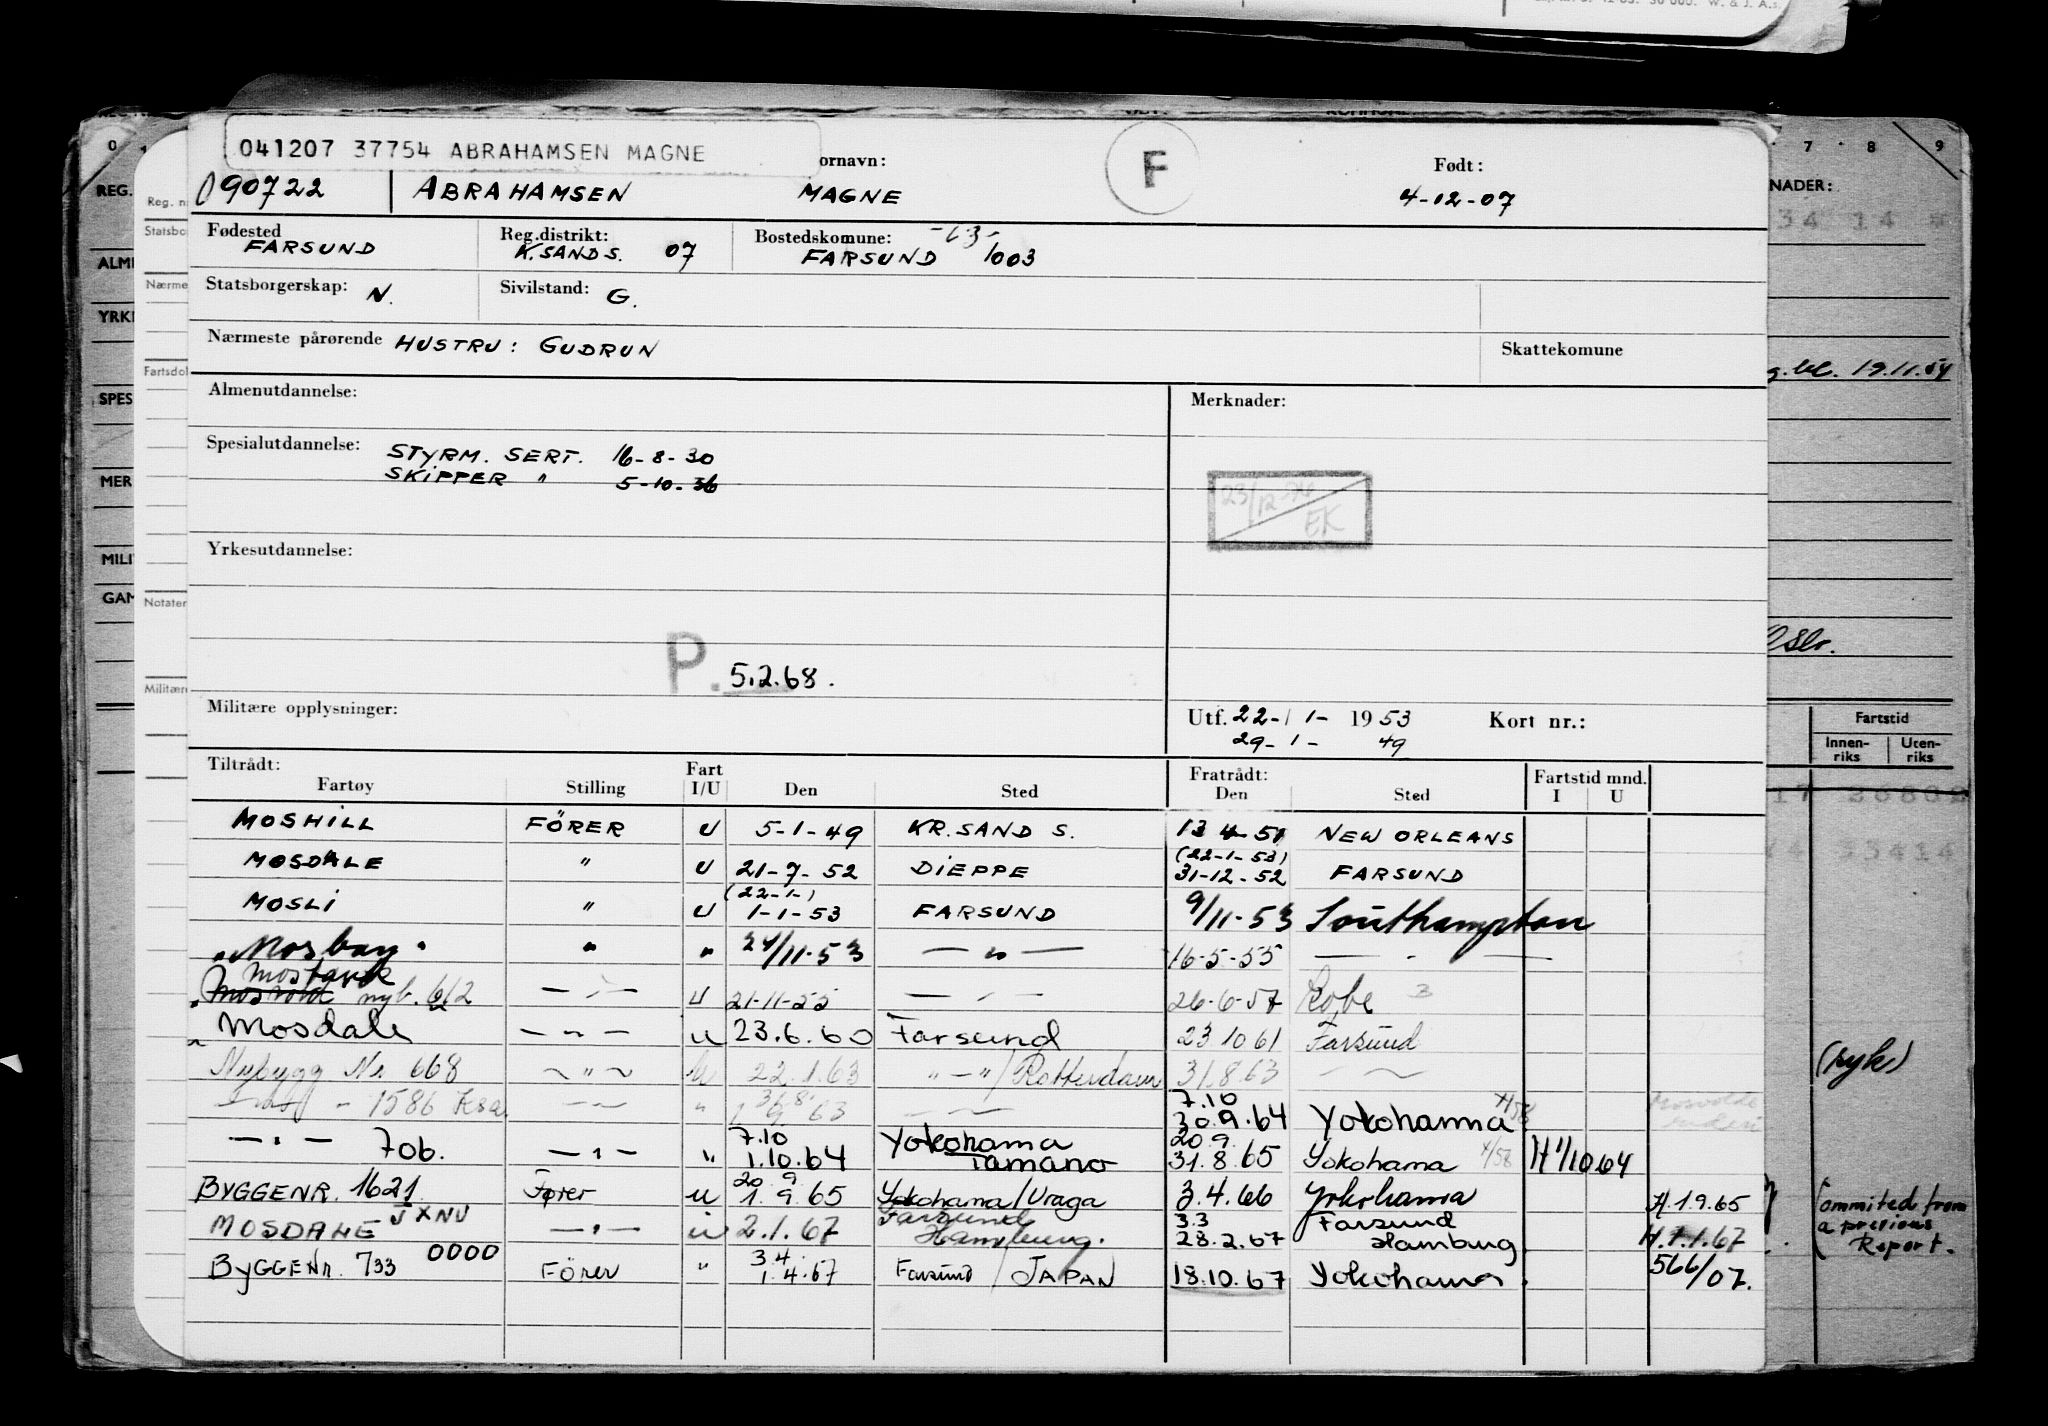 041207 37754 ABRAHAMSEN MAGNE
ornavn: F Født:
090722 ABRAHAMSEN MAGNE 4-12-07
Fødested Reg.distrikt: Bostedskomune:
FARSUND K.SAND S. 07 FARSUND 1003
Statsborgerskap: N. Sivilstand: G.
Nærmeste pårørende HUSTRU: GUDRUN Skattekomune
Almenutdannelse: Merknader:
Spesialutdannelse: STYRM. SERT. 16-8-30
SKIPPER " 5-10-36
23/12-74
EK
Yrkesutdannelse:
P. 5.2.68.
Militære opplysninger: Utf. 22-1- 1953 Kort nr.:
29-1- 49
Tiltrådt: Fart Fratrådt: Fartstid mnd.
Fartøy Stilling I/U Den Sted Den Sted I U
MOSHILL FÖRER U 5-1-49 KR.SAND S. 13 4-51 NEW ORLEANS
(22-1-53)
MOSDALE " U 21-7-52 DIEPPE 31-12-52 FARSUND
(22-1-)
MOSLI " U 1-1-53 FARSUND 9/11-53 Southampton
"Mosbay" " " 24/11-53 — " — 16-5-55 — " —
Mostank
nyb. 612 — " — U 21-11-55 — " — 26-6-57 Kobe
Mosdale — " — u 23.6.60 Farsund 23 10 61 Farsund
Nybygg Nr 668 ~ " ~ u 22.1.63 " — " / Rotterdam 31.8.63
31.8.
1586 Ksa " 1 9 63
7.10
30.9.64 Yokohama
7.10 Yokohama 20.9.
— " — 706. — " — " 1.10.64 Tamano 31.8.65 Yokohama H 1/10 64
20 9
BYGGENR. 1621 Fører u 1.9.65 Yokohama/Uraga 3.4.66 Yokohama H.1.9.65
JXNU
Farsund 3.3 Farsund
MOSDALE — " — u 2.1.67 Hamburg. 28.2.67 Hamburg H.1.1.67
0000
3.4.
BYGGENR. 733 FÖRER " 1.4.67 Farsund / JAPAN 18.10.67 Yokohama. 566/07.
0
REG.
ALM
YRK
SPES
MER
MILI
GAM
Reg. n
Statsbo
Nærme
Fartsdo
Notater
Militær
7 8 9
NADER:
34 14
19.11.54
Oslo.
Fartstid
Innen-
riks
Uten-
riks
17 20802
33414
(ryk)
Ommited from
a previous
Report.